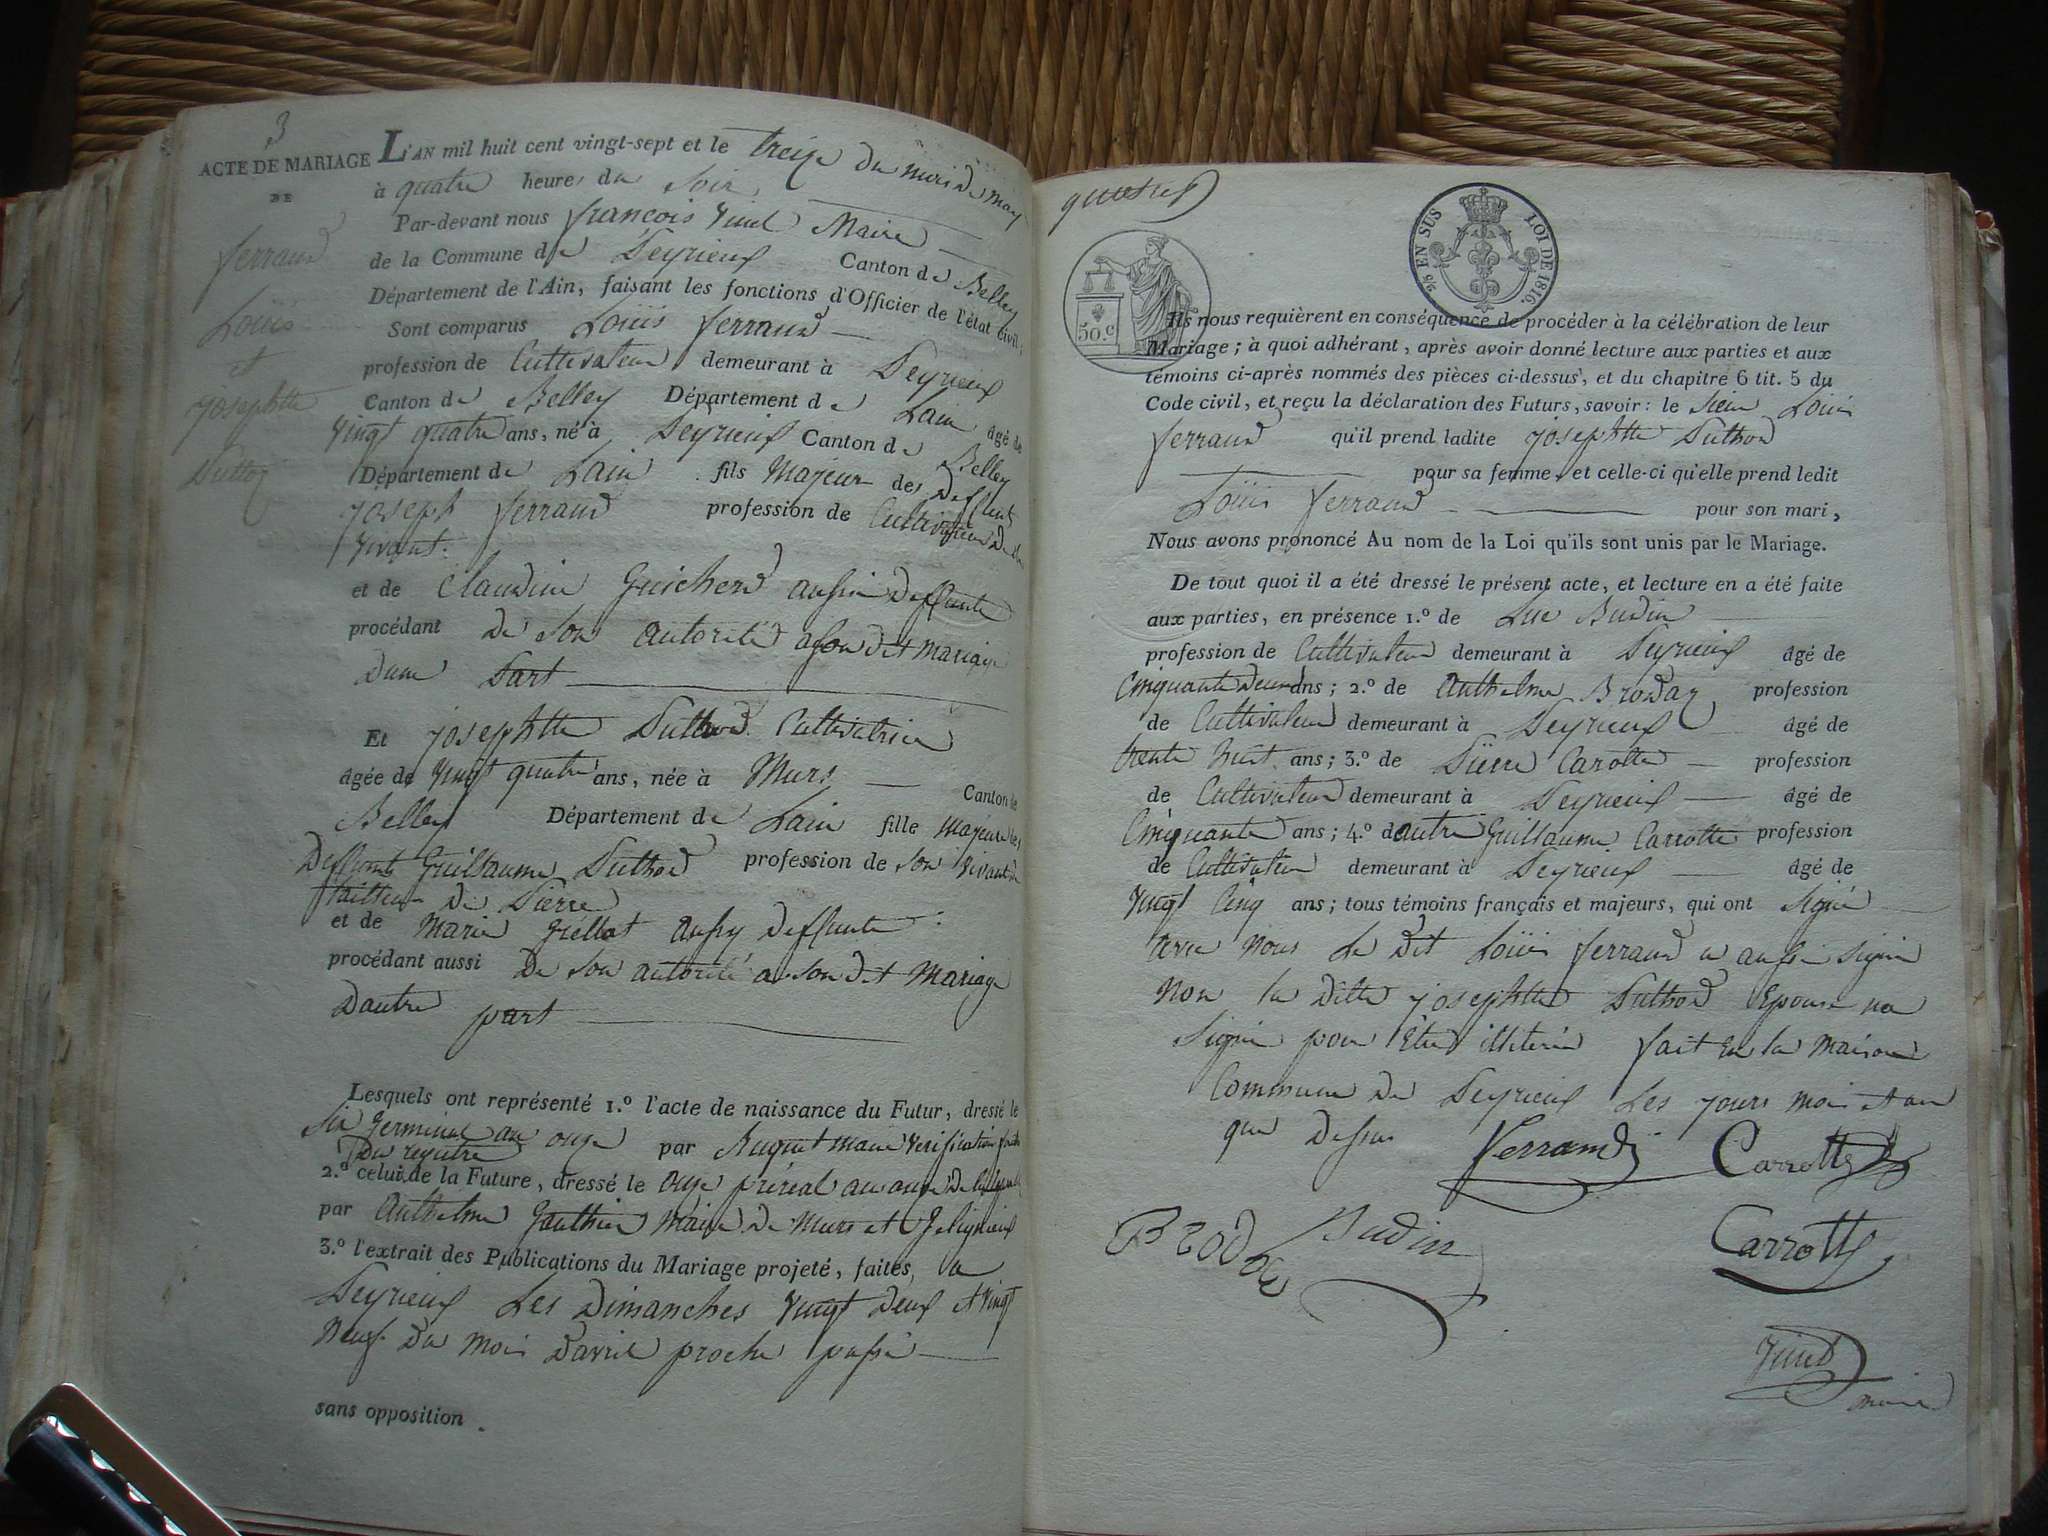 3
ACTE DE MARIAGE
DE
ferraud
Loüis
et
josephtte
Suttod
L'AN mil huit cent vingt-sept et le treize du mois de may
à quatre heures du soir
Par-devant nous françois Vinet Maire
de la Commune de Peyrieux Canton de Belley
Département de l'Ain, faisant les fonctions d'Officier de l'état civil,
Sont comparus Loüis ferraud
profession de Cultivateur demeurant à Peyrieux
Canton de Belley Département de Lain âgé de
Vingt quatre ans, né à Peyrieux Canton de Belley
Département de Lain fils Majeur des Deffunt
joseph ferraud profession de Cultivateur de son
Vivant
et de Claudine Guicherd aussi deffunte
procédant de son autorité a son dit mariage
dune Part
Et josephtte Suthod Cultivatrice
âgée de Vingt quatre ans, née à Murs Canton de
Belley Département de Lain fille Majeure des
Deffunts Guillaume Suthod profession de son Vivant de
tailleur de Pierre
et de Marie Gellot aussy deffunte
procédant aussi de son autorité a son dit Mariage
Dautre part
Lesquels ont représenté 1.º l'acte de naissance du Futur, dressé le
Six Germinal an onze par Buquet maire Verification faite
Du registre
2.º celui de la Future, dressé le onze floréal an onze
par Anthelme Gauthier Maire de Murs et Gelignieux
3.º l'extrait des Publications du Mariage projeté, faites, a
Peyrieux Les Dimanches Vingt deux et Vingt
Neuf du mois Davril proche passé
sans opposition.
50.c
25 EN SUS LOI DE 1816.
Ils nous requièrent en conséquence de procéder à la célébration de leur
Mariage; à quoi adhérant, après avoir donné lecture aux parties et aux
témoins ci-après nommés des pièces ci-dessus, et du chapitre 6 tit. 5 du
Code civil, et reçu la déclaration des Futurs, savoir: le sieur Loüis
ferraud qu'il prend ladite josephtte Suthod
pour sa femme, et celle-ci qu'elle prend ledit
Loüis ferraud pour son mari,
Nous avons prononcé Au nom de la Loi qu'ils sont unis par le Mariage.
De tout quoi il a été dressé le présent acte, et lecture en a été faite
aux parties, en présence 1.º de Luc Budin
profession de Cultivateur demeurant à Peyrieux âgé de
Cinquante deux ans; 2.º de Anthelme Broday profession
de Cultivateur demeurant à Peyrieux âgé de
trente huit ans; 3.º de Pierre Carotte profession
de Cultivateur demeurant à Peyrieux âgé de
Cinquante ans; 4.º dautre Guillaume Carrotte profession
de Cultivateur demeurant à Peyrieux âgé de
Vingt Cinq ans; tous témoins français et majeurs, qui ont signé
avec Nous Le dit Loüis ferraud a aussi signé
Non la ditte josephtte Suthod Epouse na
Signé pour Etre illiterée fait En la maison
Commune de Peyrieux Les jours mois et an
que dessus
ferrand Carrotte
Brodae Budin Carrotte
Vinet
maire